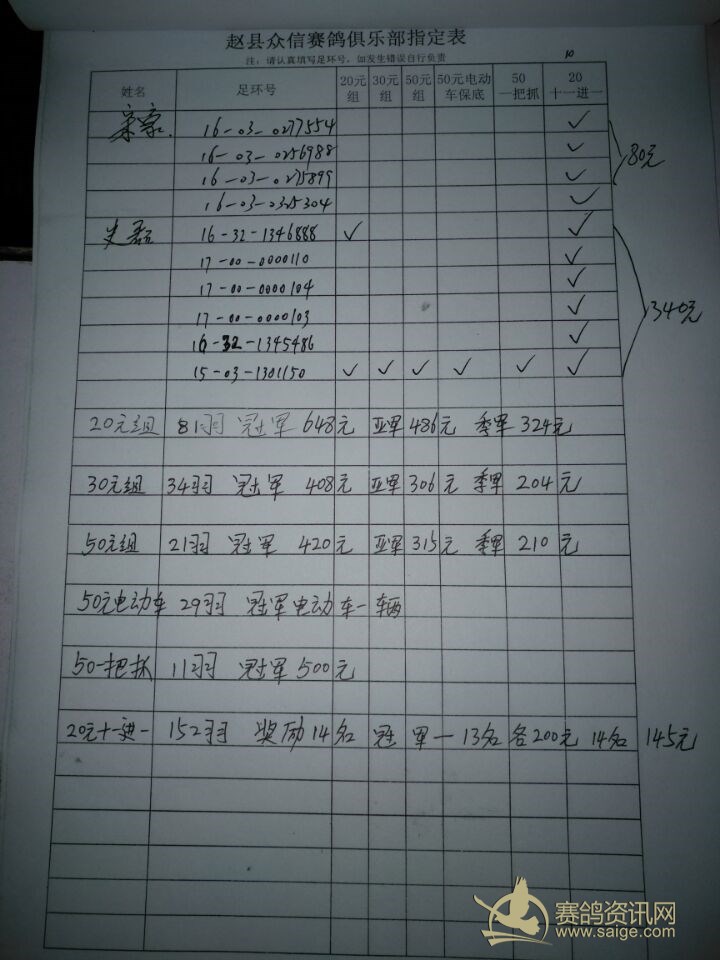 赵县众信赛鸽俱乐部指定表
注：请认真填写足环号，如发生错误自行负责
10
姓名 足环号 20元组 30元组 50元组 50元电动车保底 50一把抓 20十一进一
16-03-0277554 ✓
16-03-0256988 ✓
16-03-0235899 ✓
16-03-0325304 ✓
80元
16-32-1346888 ✓ ✓
17-00-0000110 ✓
17-00-0000104 ✓
17-00-0000103 ✓
16-32-1345486 ✓
15-03-1301150 ✓ ✓ ✓ ✓ ✓ ✓
340元
20元组 81羽 冠军 648元 亚军 486元 季军 324元
30元组 34羽 冠军 408元 亚军 306元 季军 204元
50元组 21羽 冠军 420元 亚军 315元 季军 210元
50元电动车 29羽 冠军电动车一辆
50一把抓 11羽 冠军 500元
20元十一进一 152羽 奖励14名 冠军—13名 各200元 14名 145元
赛鸽资讯网
www.saige.com